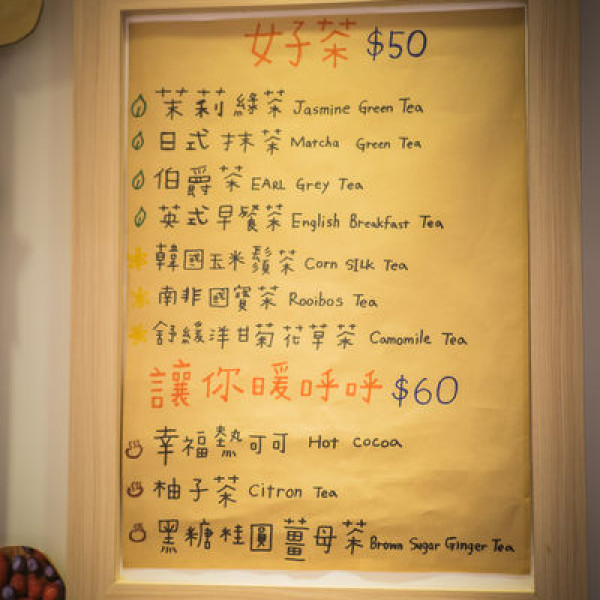 女子茶 $50
茉莉綠茶 Jasmine Green Tea
日式抹茶 Matcha Green Tea
伯爵茶 EARL Grey Tea
英式早餐茶 English Breakfast Tea
韓國玉米鬚茶 Corn SILK Tea
南非國寶茶 Rooibos Tea
舒緩洋甘菊花草茶 Camomile Tea
讓你暖呼呼 $60
幸福熱可可 Hot Cocoa
柚子茶 Citron Tea
黑糖桂圓薑母茶 Brown Sugar Ginger Tea